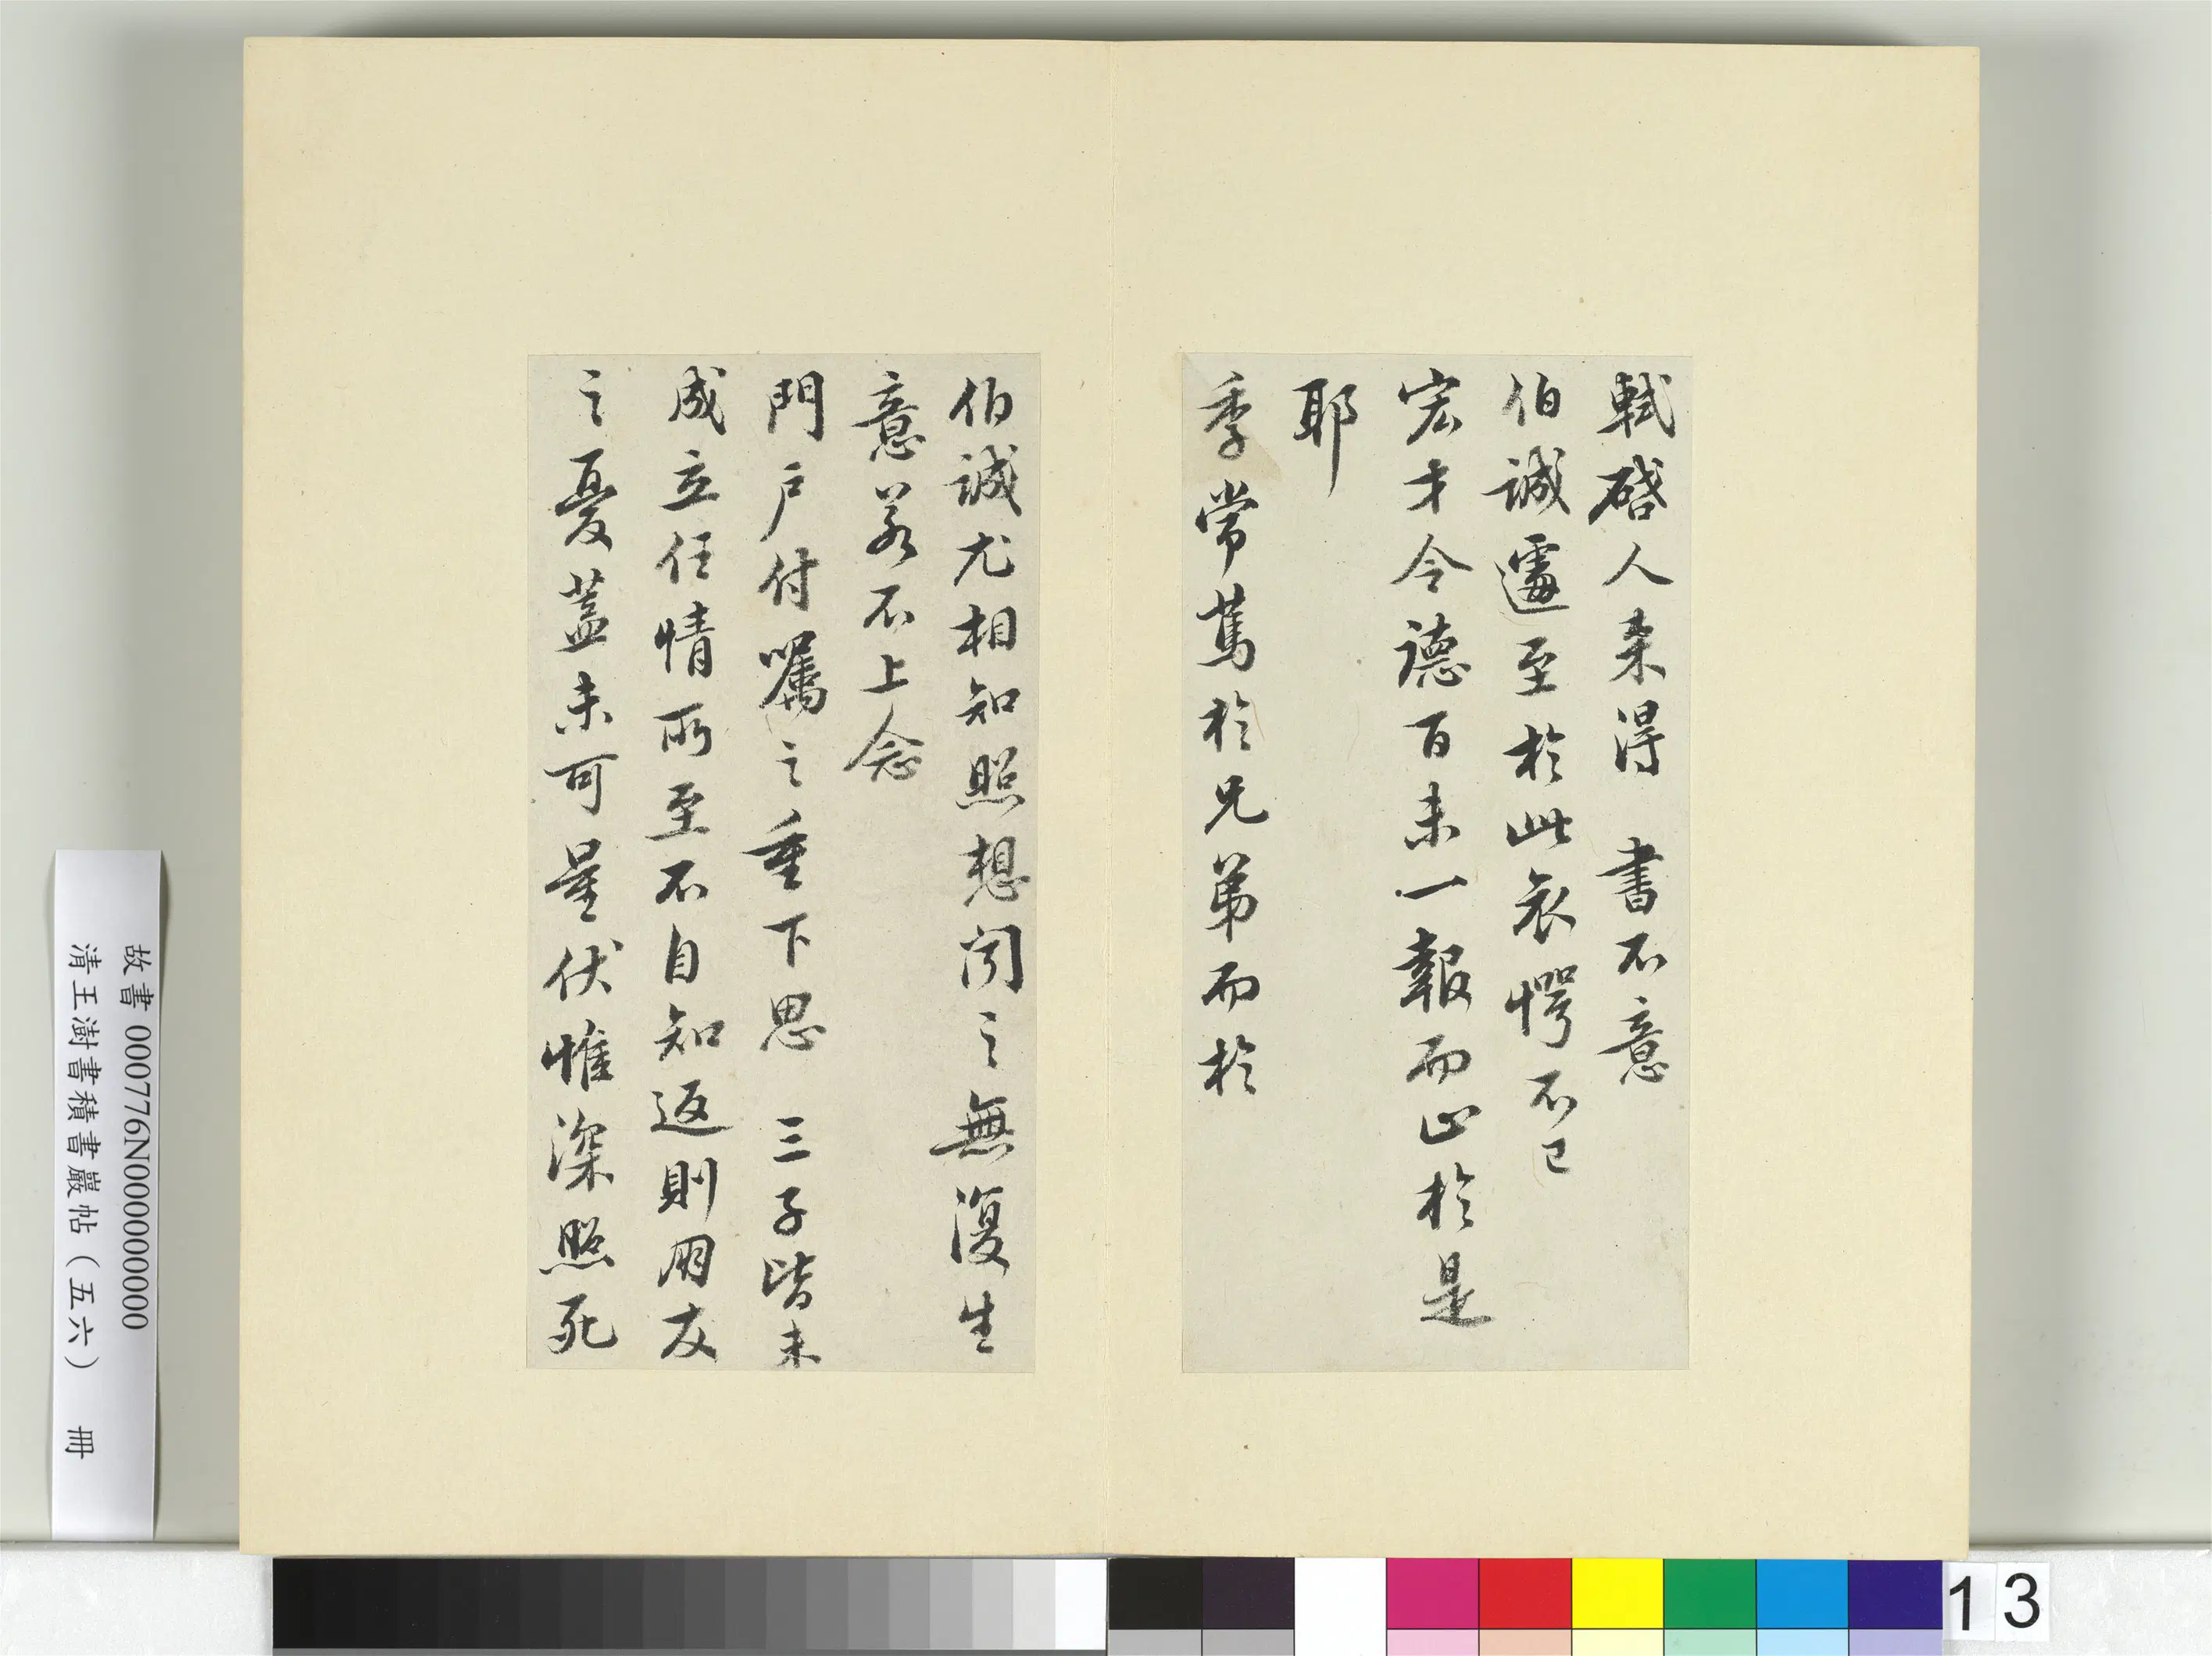 軾啓人來得 書不意
伯誠遽至於此哀愕不已
宏才令德百未一報而止於是
耶
季常篤於兄弟而於
伯誠尤相知照想聞之無復生
意若不上念
門戶付囑之重下思 三子皆未
成立任情所至不自知返則朋友
之憂蓋未可量伏惟深照死
故書 000776N000000000
清王澍書積書巖帖(五六) 冊
13